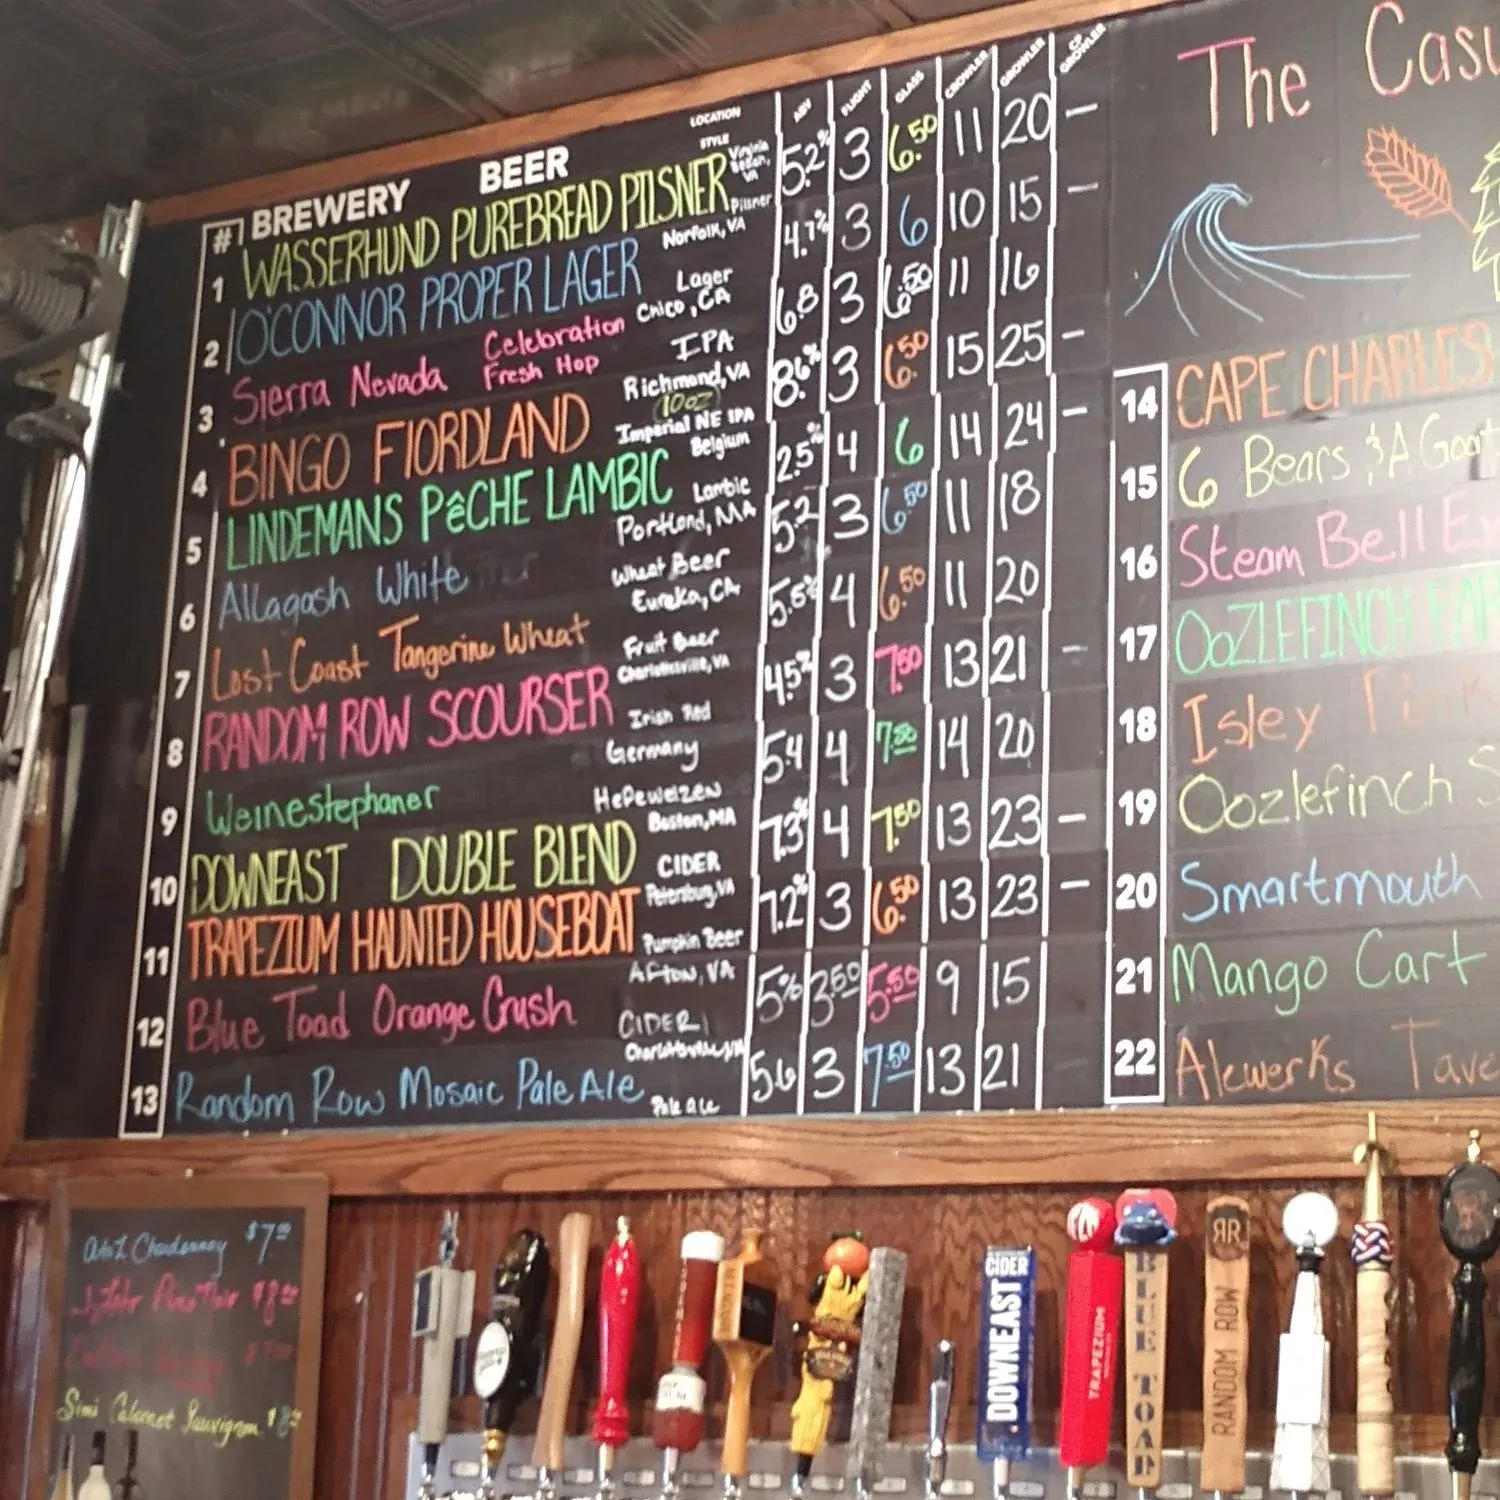 The Casu
# BREWERY BEER LOCATION STYLE ABV FLIGHT GLASS CROWLER GROWLER CP GROWLER
1 WASSERHUND PUREBREAD PILSNER Virginia Beach, VA Pilsner 5.2% 3 6.50 11 20 —
2 O'CONNOR PROPER LAGER Norfolk, VA Lager 4.7% 3 6 10 15 —
3 Sierra Nevada Celebration Fresh Hop Chico, CA IPA 6.8 3 6.50 11 16
4 BINGO FIORDLAND Richmond, VA 10oz Imperial NE IPA 8.6% 3 6.50 15 25 —
5 LINDEMANS PêCHE LAMBIC Belgium Lambic 2.5% 4 6 14 24 —
6 Allagash White Portland, MA Wheat Beer 5.2 3 6.50 11 18
7 Lost Coast Tangerine Wheat Eureka, CA Fruit Beer 5.5% 4 6.50 11 20
8 RANDOM ROW SCOURSER Charlottesville, VA Irish Red 4.5% 3 7.50 13 21 —
9 Weinestephaner Germany Hefeweizen 5.4 4 7.50 14 20
10 DOWNEAST DOUBLE BLEND Boston, MA CIDER 7.3% 4 7.50 13 23 —
11 TRAPEZIUM HAUNTED HOUSEBOAT Petersburg, VA Pumpkin Beer 7.2% 3 6.50 13 23 —
12 Blue Toad Orange Crush Afton, VA CIDER 5% 3.50 5.50 9 15
13 Random Row Mosaic Pale Ale Charlottesville, VA Pale ale 5.6 3 7.50 13 21
14 CAPE CHARLES
15 6 Bears & A Goat
16 Steam Bell Ex
17 OOZLEFINCH FAR
18 Isley
19 Oozlefinch S
20 Smartmouth
21 Mango Cart
22 Alewerks Tave
A to Z Chardonnay $7.00
Pinot Noir $8.00
Simi Cabernet Sauvignon
CIDER
DOWNEAST
TRAPEZIUM
BLUE TOAD
RR
RANDOM ROW